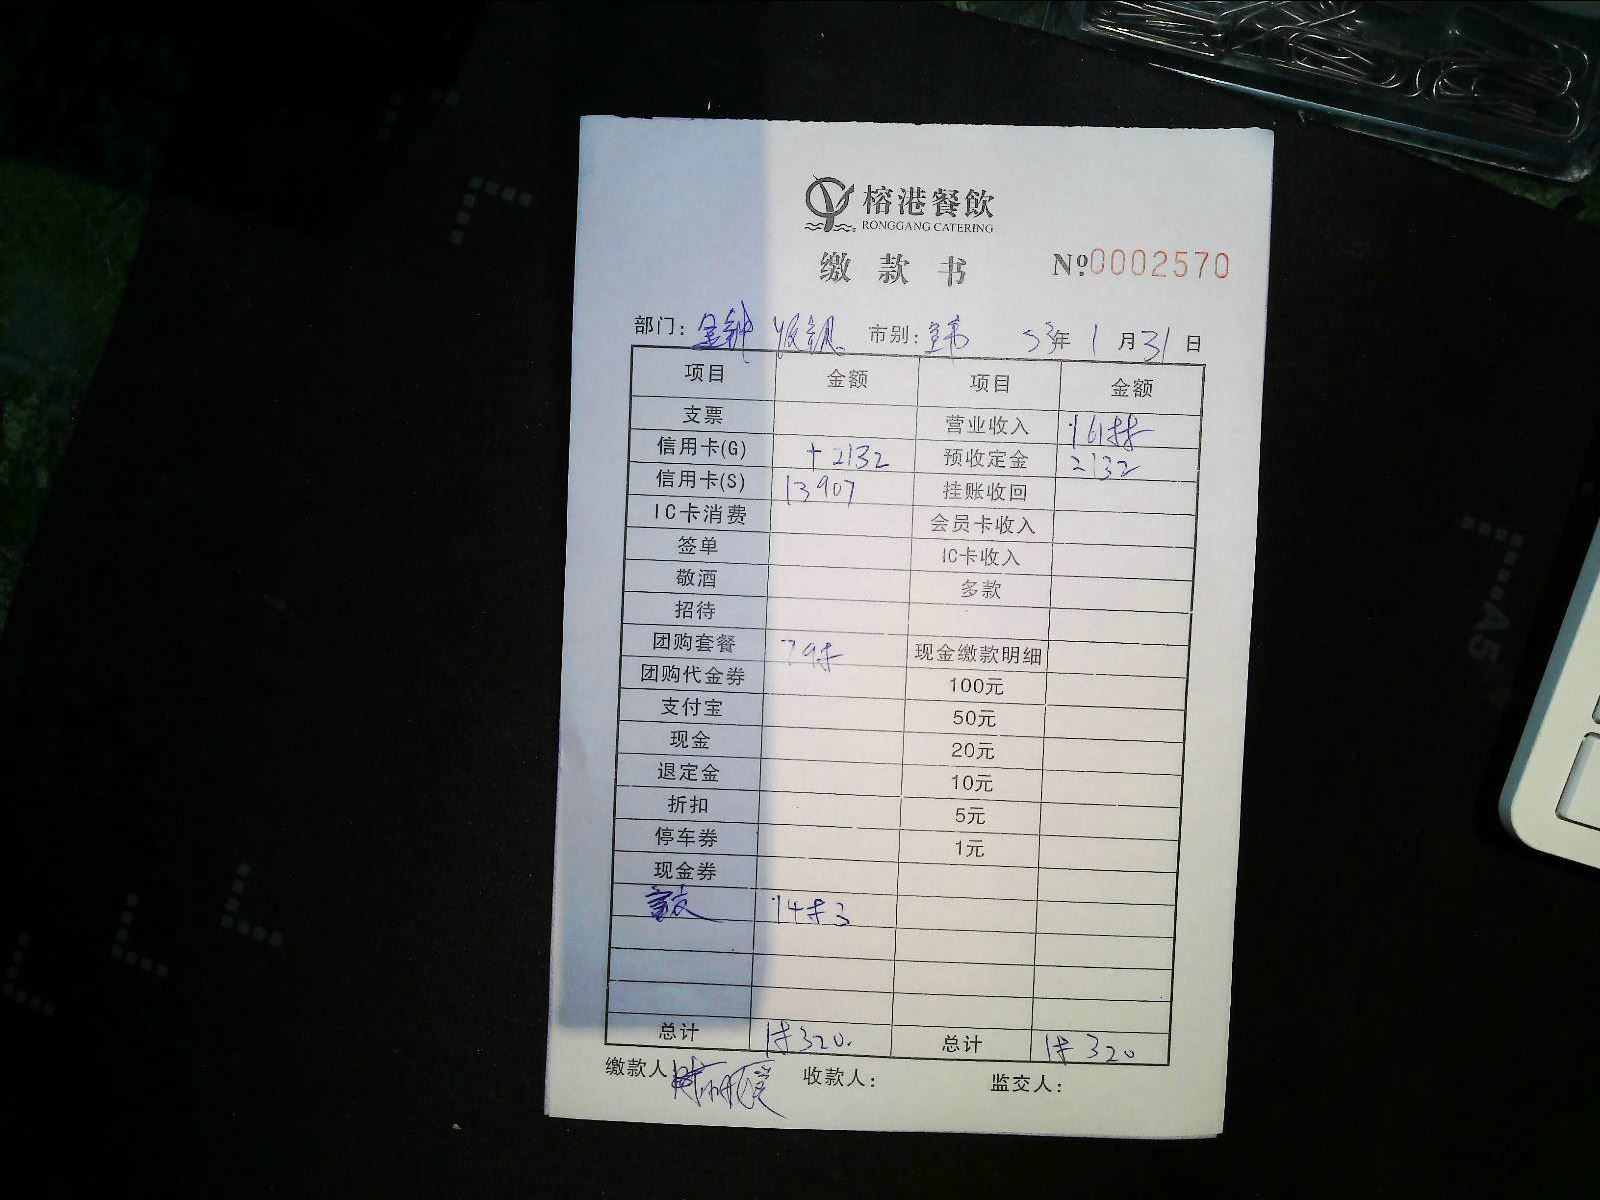 榕港餐飲
RONGGANG CATERING
缴款书 №0002570
部门: 市别: 年 1 月 31 日
项目 金额 项目 金额
支票 营业收入 16188
信用卡(G) +2132 预收定金 2132
信用卡(S) 13907 挂账收回
IC卡消费 会员卡收入
签单 IC卡收入
敬酒 多款
招待
团购套餐 798 现金缴款明细
团购代金券 100元
支付宝 50元
现金 20元
退定金 10元
折扣 5元
停车券 1元
现金券
1483
总计 18320. 总计 18320
缴款人 收款人: 监交人:
A5